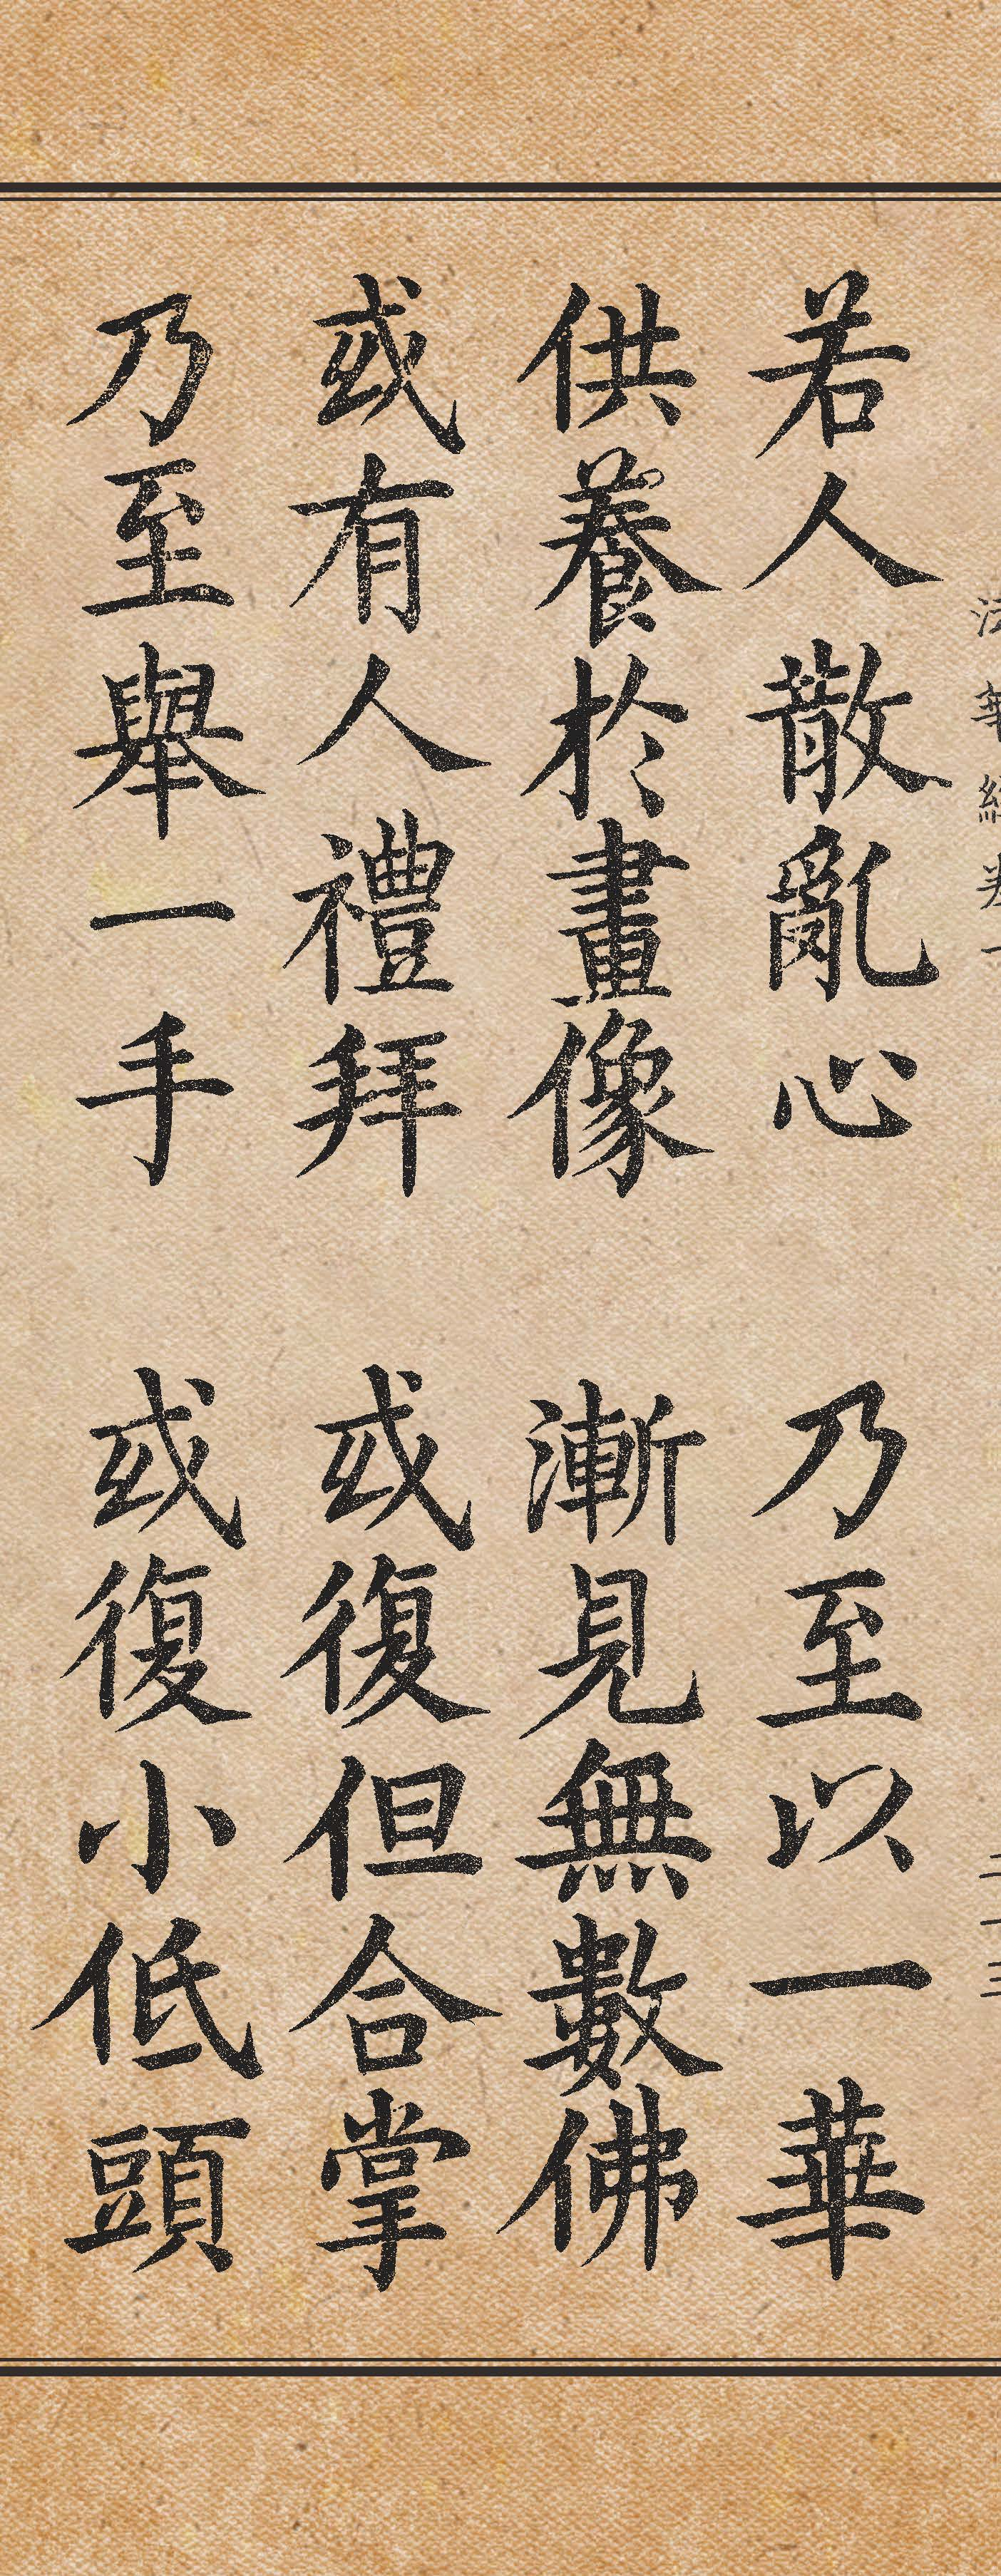 若人散亂心 乃至以一華
供養於畫像 漸見無數佛
或有人禮拜 或復但合掌
乃至舉一手 或復小低頭